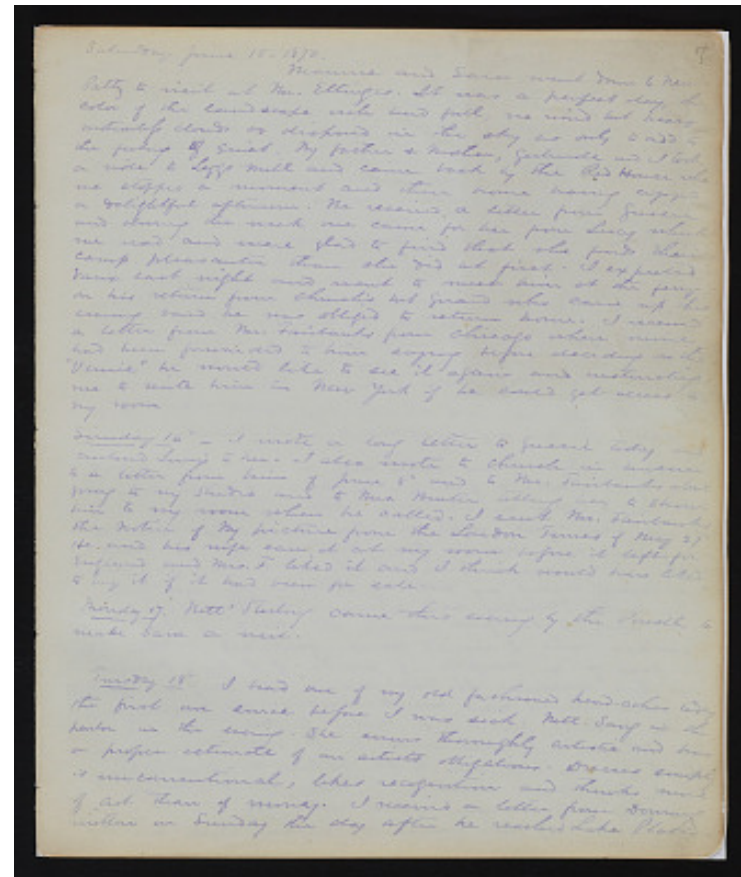 Saturday, June 15. 1872.
Maurice and Sara went down to New
Paltz to visit at Mr. Eltinges. It was a perfect day, the
color of the landscape rich and full, no wind but heavy
clouds so disposed in the sky as only to add to
the feeling of quiet. My father & mother, Gertrude and I took
a ride to Legg's Mill and came back by the Red House where
we stopped a moment and then home having enjoyed
a delightful afternoon. We received a letter from
and during the week one came for her from Lucy which
we read and were glad to find that she finds their
camp pleasanter than she did at first. I expected
last night and went to meet him at the ferry
on his return from Church's but Girard who came up this
evening said he was obliged to return home. I received
a letter from Mr. Fairbanks from Chicago where mine
had been forwarded to him saying before deciding on the
"Venice" he would like to see it again and instructing
me to write him in New York if he could get access to
my room
Sunday 16" - I wrote a long letter to today and
I also wrote to Church in answer
to a letter from him of June 5" and to Mr. Fairbanks about
going to my studio and to Mrs. Hunter telling her to show
him to my room when he called. I sent Mr. Fairbanks
the notice of my picture from the London Times of May 27
He and his wife saw it at my room before it left for
England and Mrs. F liked it and I think would have liked
to buy it if it had been for sale.
Monday 17" "Nett" Sterling came this evening by the Powell to
make Sara a visit.
Tuesday 18" I had one of my old fashioned head-aches today
the first one since before I was sick. Nett sang in the
parlor in the evening. She seems thoroughly artistic and has
a proper estimate of an artists obligations. Dresses simply
is unconventional, likes recognition and thinks more
of art than of money. I received a letter from
written on Sunday the day after he reached Lake Placid